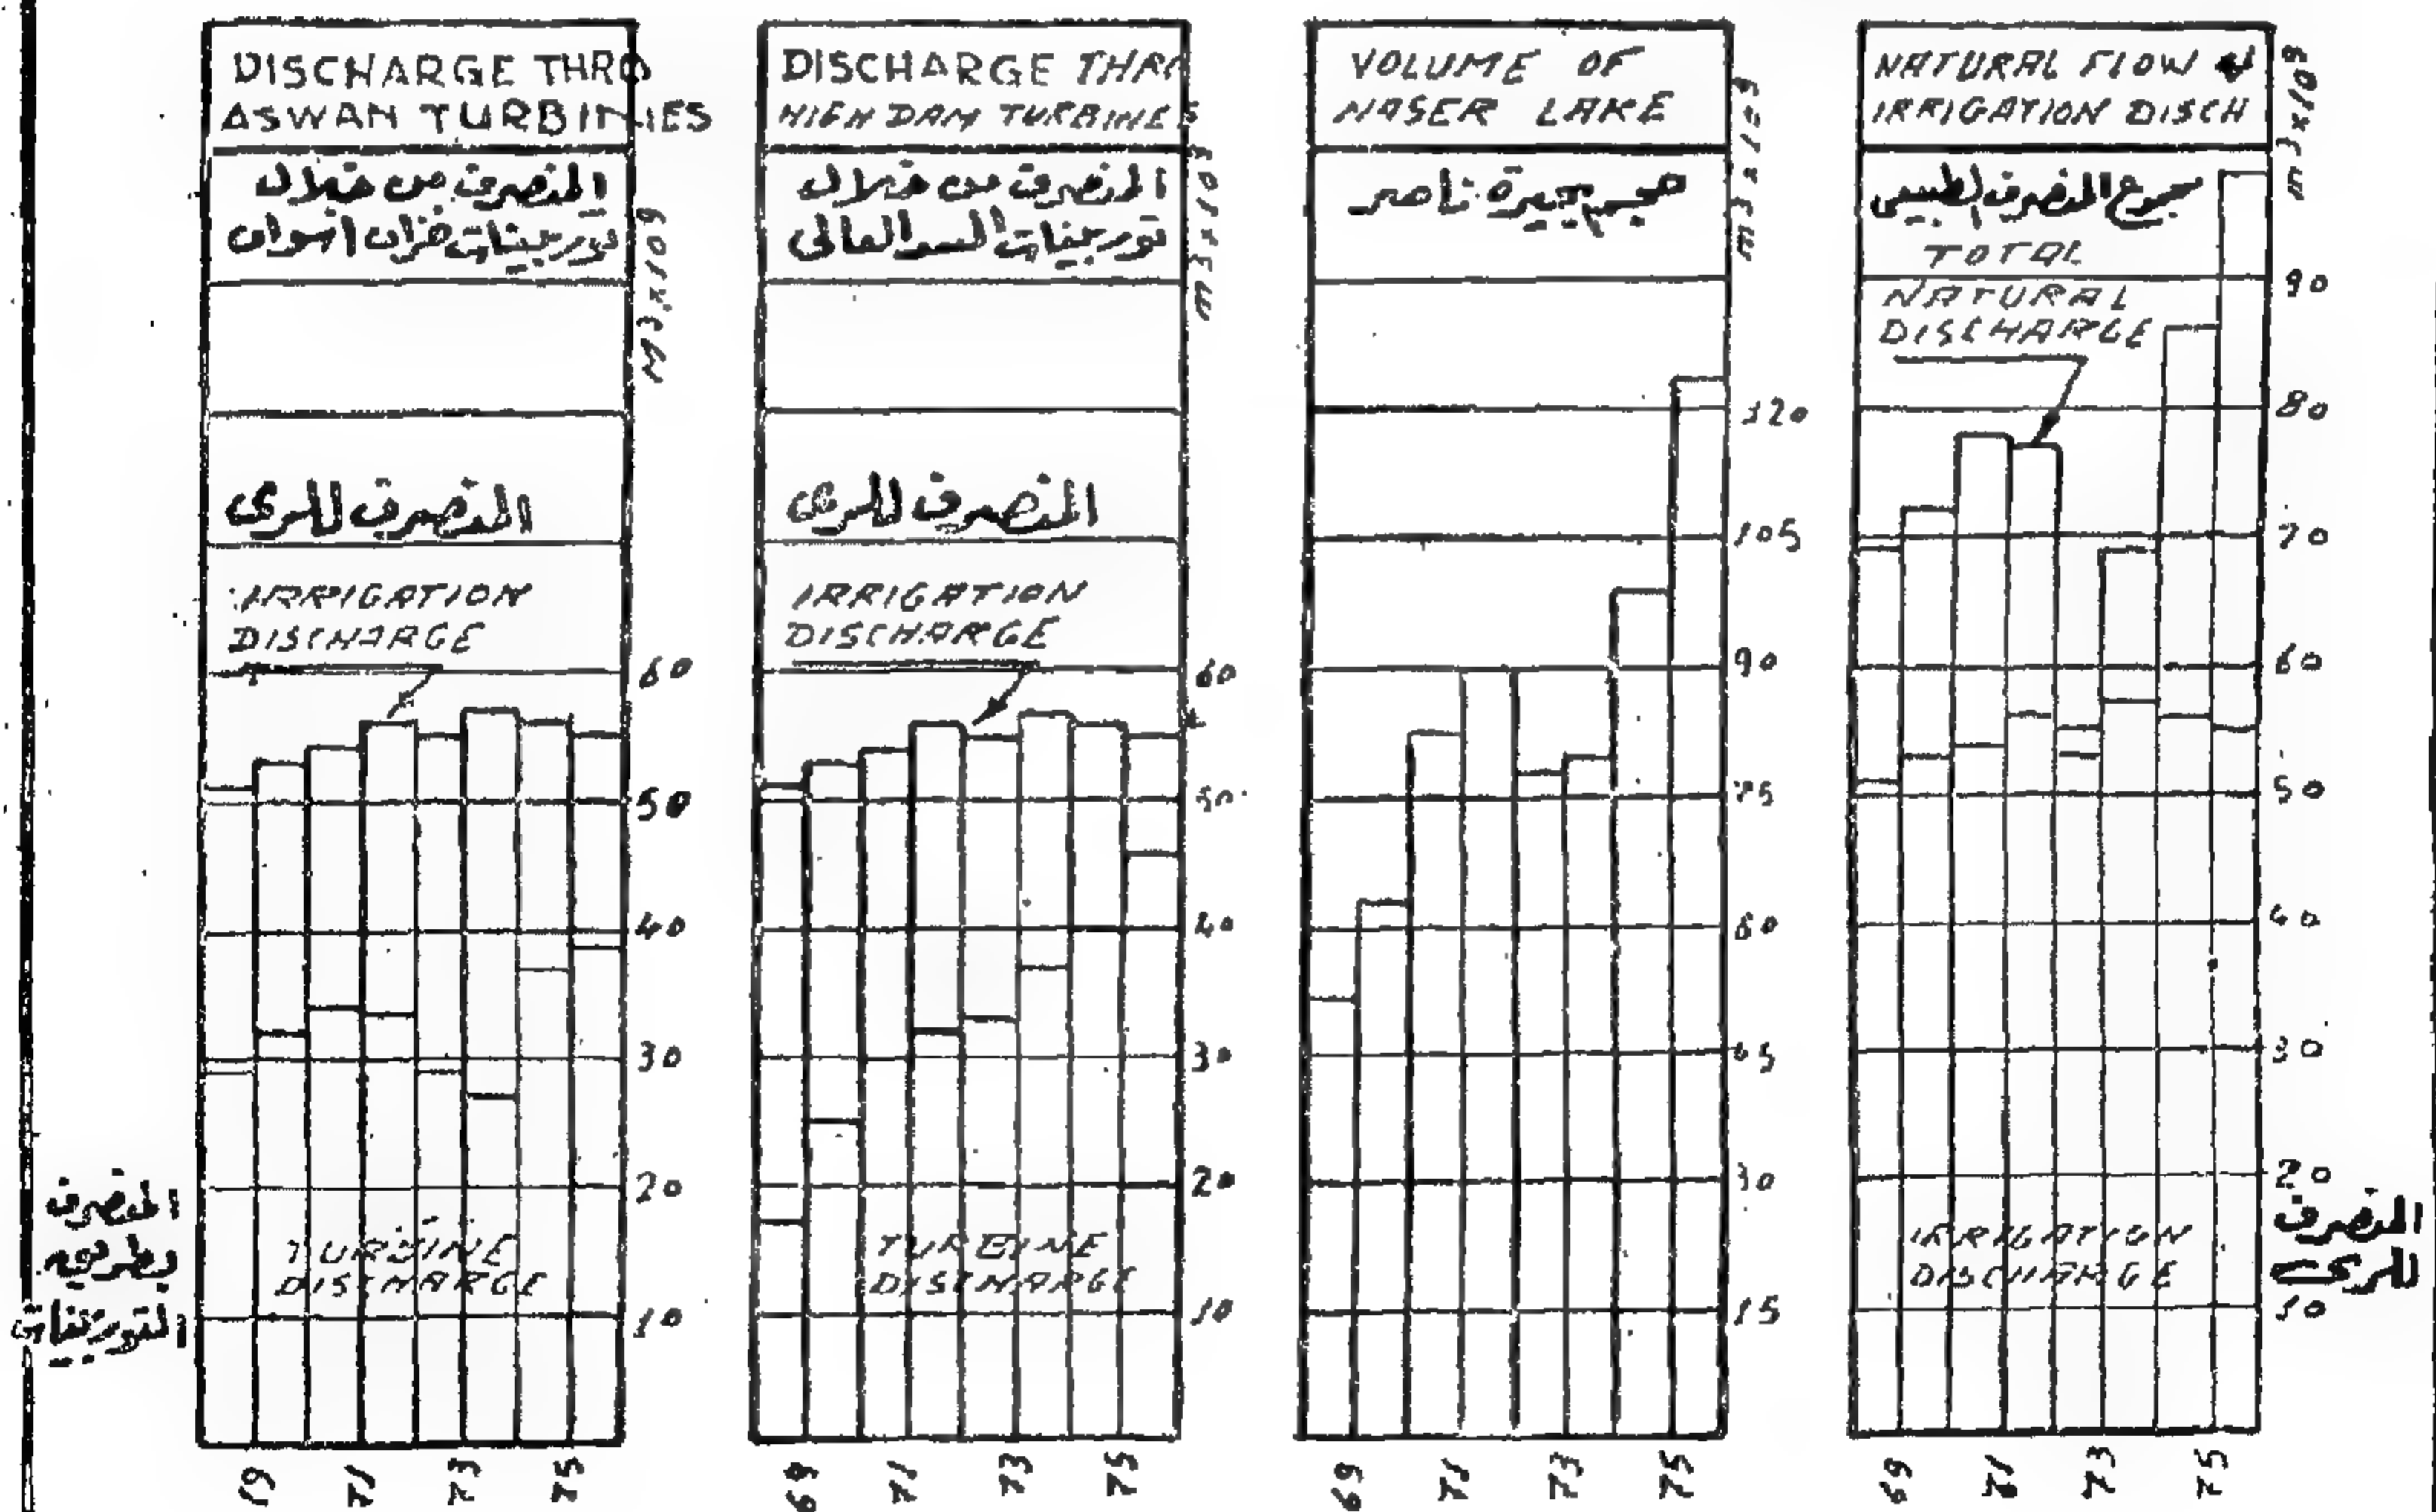 DISCHARGE THRO
ASWAN TURBINES
المنصرف من خلال
توربينات خزان اسوان
M3x109
المنصرف للرى
IRRIGATION
DISCHARGE
60
50
40
30
20
10
TURBINE
DISCHARGE
المنصرف
بطريق
التوربينات
71
73
75
DISCHARGE THRO
HIGH DAM TURBINES
المنصرف من خلال
توربينات السد العالى
m3x109
المنصرف للرى
IRRIGATION
DISCHARGE
60
50
40
30
20
10
TURBINE
DISCHARGE
69
71
73
75
VOLUME OF
NASER LAKE
حجم بحيرة ناصر
m3x109
120
105
90
75
60
45
30
15
69
71
73
75
NATURAL FLOW &
IRRIGATION DISCH
مجموع المنصرف الطبيعى
m3x109
TOTAL
NATURAL
DISCHARGE
90
80
70
60
50
40
30
20
10
IRRIGATION
DISCHARGE
المنصرف
للرى
69
71
73
75